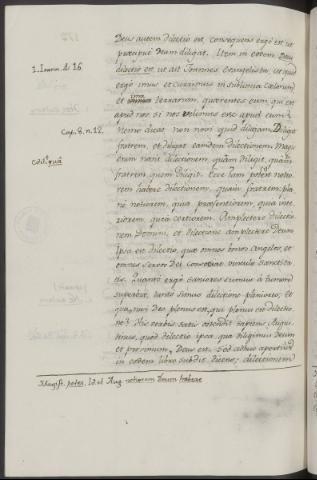 Deus autem dilectio est, consequens ergo est ut
præcipue Deum diligat. Item in eodem Deus
1. Joann. 4. 16
dilectio est, ut ait Joannes Evangelista, ut quid
ergo imus et currimus in sublimia Cœlorum
et ima terrarum, quærentes eum qui est
apud nos, si nos velimus esse apud eum?
Cap. 8. n. 12.
Nemo dicat, non novi quid diligam. Diligat
fratrem, et diligat eamdem dilectionem. Magis
enim novit dilectionem, quam diligit, quam
fratrem quem diligit. Ecce jam potest notio-
rem habere dilectionem, quam fratrem: pla-
ne notiorem, quia præsentiorem, quia inte-
riorem, quia certiorem. Amplectere dilectio-
nem Deum, et dilectione amplectere Deum.
Ipsa est dilectio, quæ omnes bonos Angelos, et
omnes servos Dei consociat vinculo sanctita-
tis. Quanto ergo saniores sumus a tumore
superbiæ, tanto sumus dilectione pleniores; et
quo, nisi Deo plenus est, qui plenus est dilectio-
ne? His verbis satis ostendit Augus-
tinus, quod dilectio ipsa, qua diligimus Deum
et proximum, Deus est. Sed adhuc apertius
in eodem libro subdit, dicens; dilectionem
Magist. notiorem Deum habere